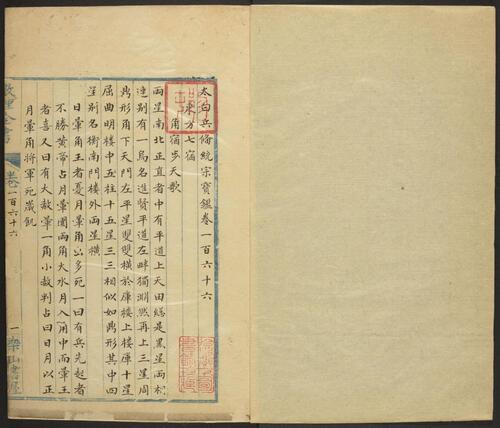 太白兵備統宗寶鑑卷一百六十六
東方七宿
角宿步天歌
兩星南北正直著中有平道上天田總是黑星兩相
連別有一烏名進賢平道左畔獨淵然再上三星周
鼎形角下天門左平星雙雙橫於庫樓上樓庫十星
屈曲明樓中五柱十五星三三相似如鼎形其中四
星別名衡南門樓外兩星橫
日暈角王者憂月暈角山多死一曰有兵先起者
不勝黃帝占月暈圍兩角大水月入角中而暈王
者喜又曰有大赦暈一角小赦判占曰日月以正
月暈角將軍死歲飢
卷一百六十六
一
樂山書屋